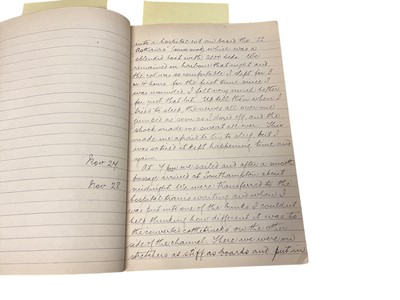 into a hospital cot on board the SS
which was a
splendid boat with 2000 beds. We
remained in harbour that night and
the cot was so comfortable I slept for 3
or 4 hours for the first time since I
was wounded. I felt very much better
for just that bit. Up till then when I
tried to sleep, the nerves all over me
jumped as soon as I dozed off, and the
shock made me sweat all over. This
made me afraid to try to sleep, but I
was so tired it kept happening time and
again.
At 4 pm we sailed and after a smooth
passage arrived at Southampton about
midnight. We were transferred to the
hospital trains waiting and when I
was put into one of the bunks I couldn't
help thinking how different it was to
the converted cattletrucks on the other
side of the channel. There we were on
stretchers as stiff as boards and put in
Nov 27
Nov 28